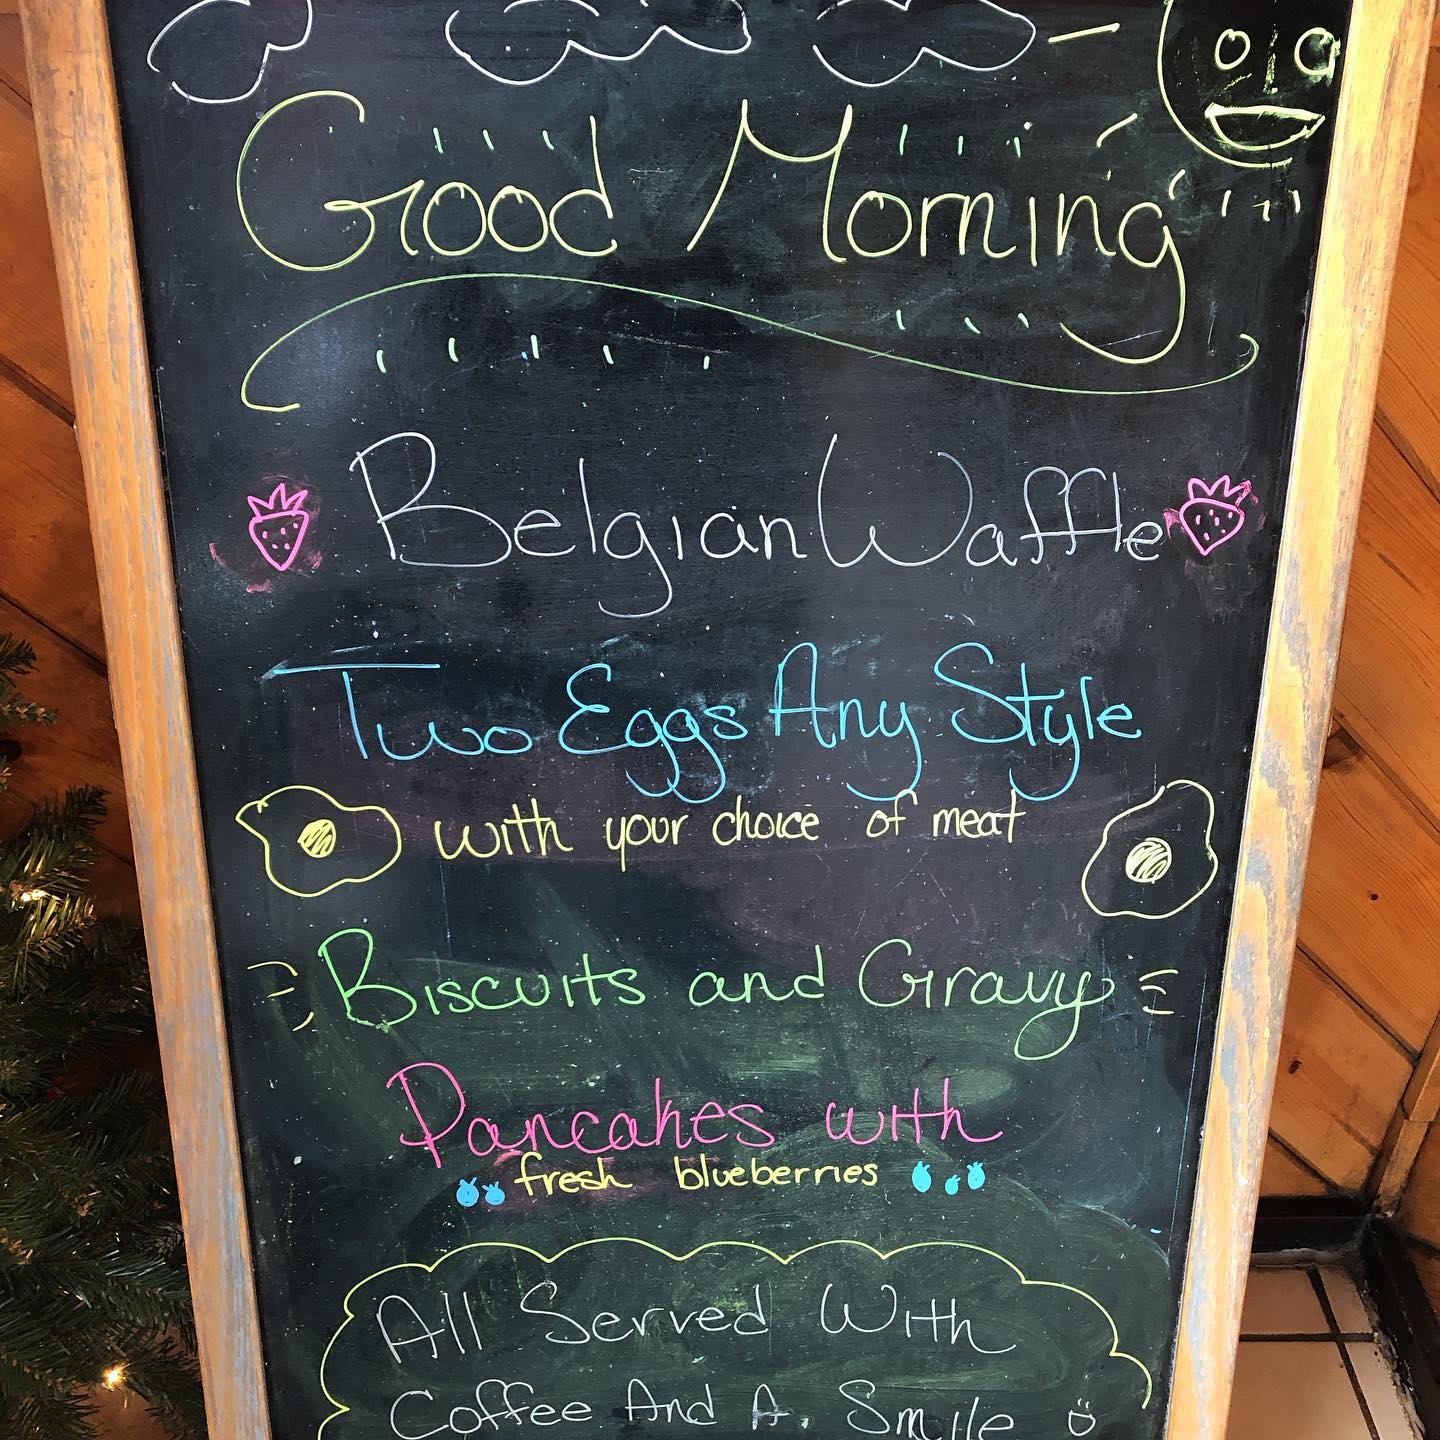 Good Morning
Belgian Waffle
Two Eggs Any Style
with your choice of meat
Biscuits and Gravy
Pancakes with
fresh blueberries
All Served With
Coffee And A. Smile